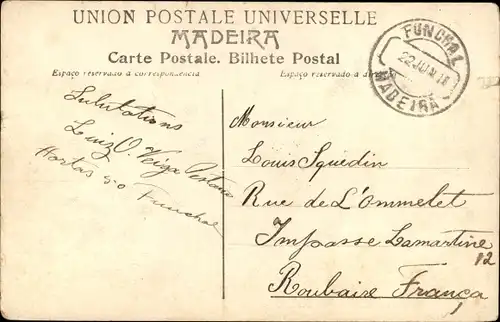 UNION POSTALE UNIVERSELLE
MADEIRA
Carte Postale. Bilhete Postal
Espaço reservado á correspondencia
Espaço reservado a
FUNCHAL
22 JUN 11
MADEIRA
Salutations
Luiz O. Veiga Pestana
Hortas 50 Funchal
Monsieur
Louis Squedin
Rue de L'Ommelet
Impasse Lamartine
12
Roubaix França